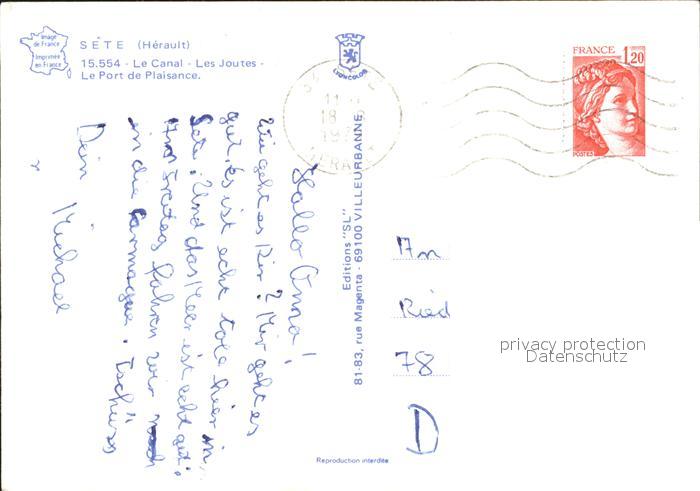 Image
de France
Imprimée
en France
SÈTE (Hérault)
15.554 - Le Canal - Les Joutes -
Le Port de Plaisance.
LYONCOLOR
11
18
FRANCE 1,20
POSTES
Hallo Anna!
Wie geht es Dir? Mir geht es
gut. Es ist echt toll hier in
Sete. Und das Meer ist echt gut.
Am Freitag fahren wir noch
in die Carmague. Tschüss
Dein Michael
Editions "SL"
81-83, rue Magenta - 69100 VILLEURBANNE
An
Ried
78
D
privacy protection
Datenschutz
Reproduction interdite